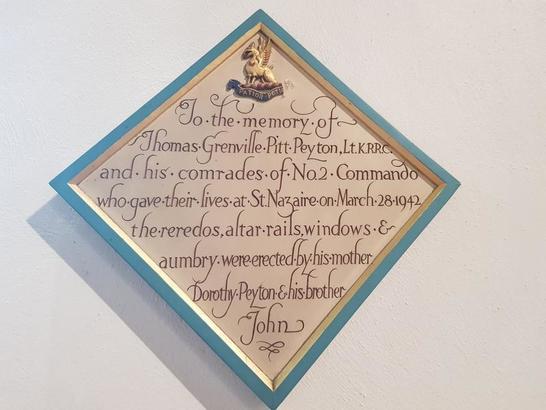 PATIOR POTIOR
To · the · memory · of
Thomas · Grenville · Pitt · Peyton, Lt. K.R.R.C.
and · his · comrades · of · No. 2 · Commando
who · gave · their · lives · at · St. Nazaire · on · March · 28 · 1942
the · reredos, altar · rails, windows · &
aumbry · were · erected · by · his · mother
Dorothy · Peyton · & · his · brother
John